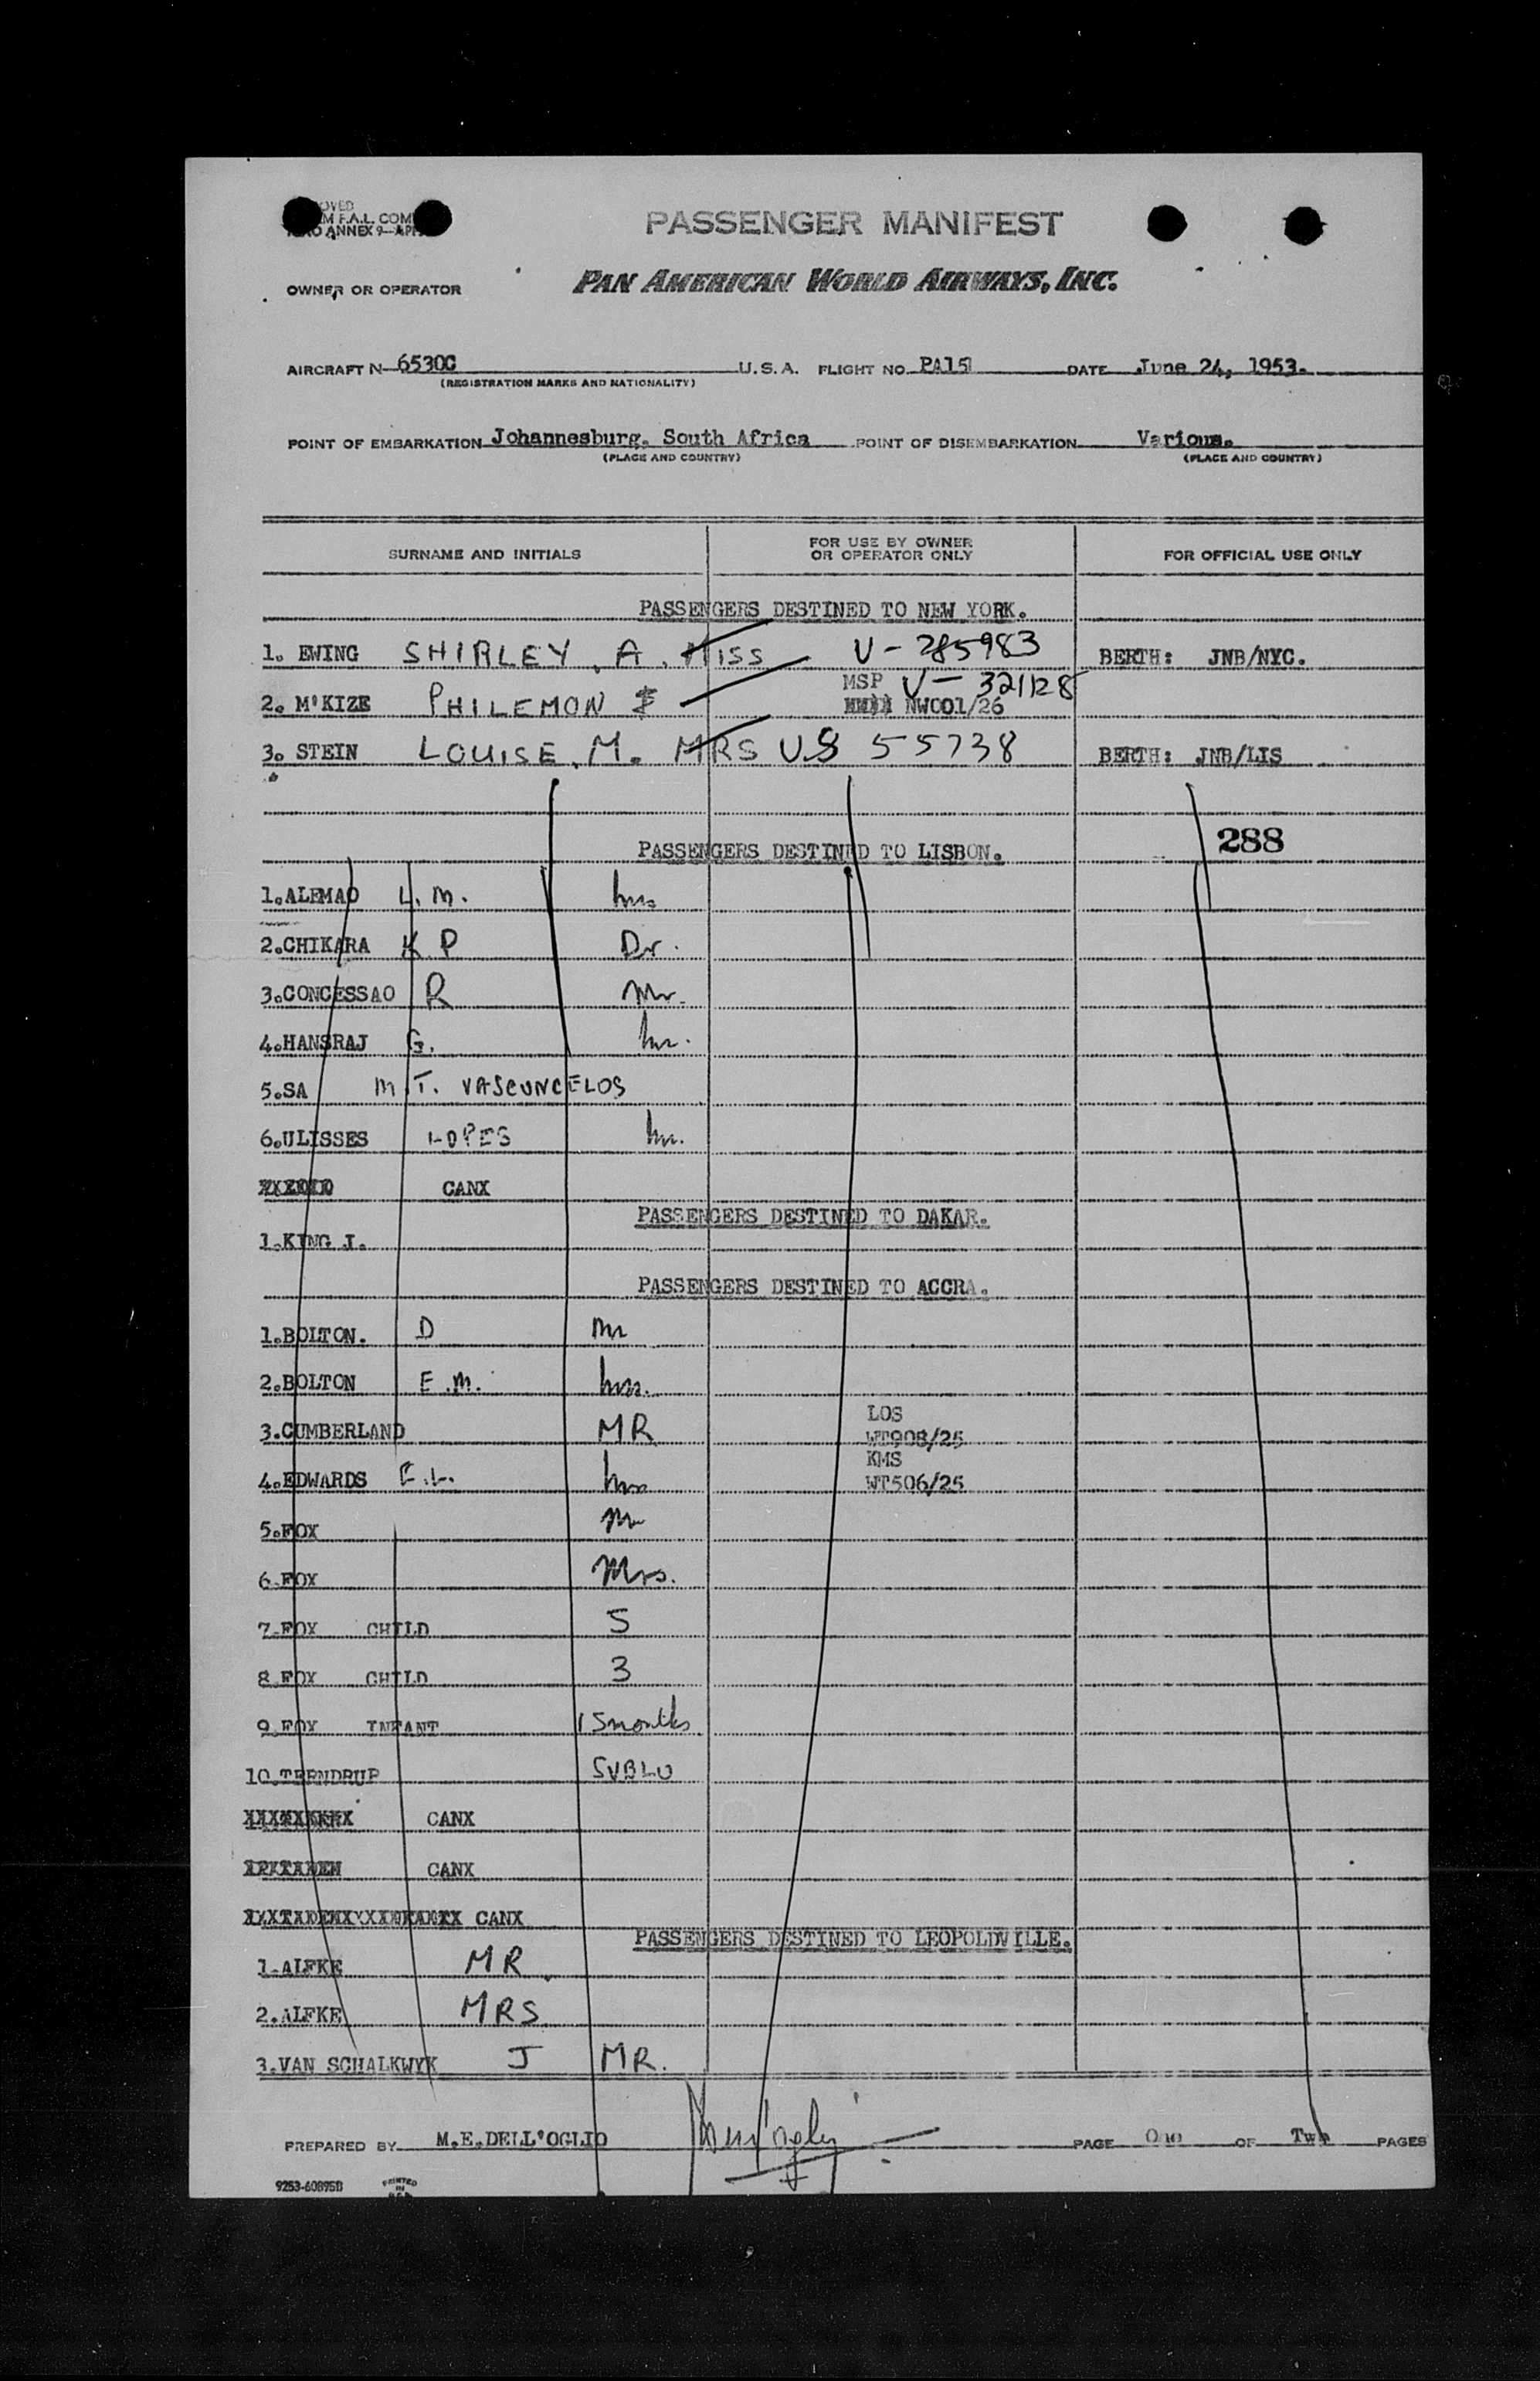 PASSENGER MANIFEST
OWNER OR OPERATOR PAN AMERICAN WORLD AIRWAYS, INC.
AIRCRAFT N- 6530C U.S.A. FLIGHT NO. PA151 DATE June 24, 1953.
(REGISTRATION MARKS AND NATIONALITY)
POINT OF EMBARKATION Johannesburg. South Africa POINT OF DISEMBARKATION Various.
(PLACE AND COUNTRY) (PLACE AND COUNTRY)
SURNAME AND INITIALS FOR USE BY OWNER OR OPERATOR ONLY FOR OFFICIAL USE ONLY
PASSENGERS DESTINED TO NEW YORK.
1. EWING SHIRLEY. A. MISS V-285983 BERTH: JNB/NYC.
MSP V-321128
2. M'KIZE PHILEMON NW001/26
3. STEIN LOUISE. M. MRS US 55738 BERTH: JNB/LIS
288
PASSENGERS DESTINED TO LISBON.
1.ALEMAO L.M.
2.CHIKARA K P Dr.
3.CONCESSAO R Mr.
4.HANSRAJ G. Mr.
5.SA M.T. VASCONCELOS
6.ULISSES LOPES Mr.
CANX
PASSENGERS DESTINED TO DAKAR.
1.KING J.
PASSENGERS DESTINED TO ACCRA.
1.BOLTON. D Mr
2.BOLTON E.M. Mrs.
LOS
3.CUMBERLAND MR WT908/25
KMS
4.EDWARDS E.L. WT506/25
5.FOX Mr
6.FOX Mrs.
7.FOX CHILD 5
8.FOX CHILD 3
9.FOX INFANT 15months
10.TERNDRUP SVBLO
CANX
CANX
CANX
PASSENGERS DESTINED TO LEOPOLDVILLE.
1.ALFKE MR
2.ALFKE MRS
3.VAN SCHALKWYK J MR.
PREPARED BY M.E.DELL'OGLIO PAGE One OF Two PAGES
9253-60895B PRINTED IN